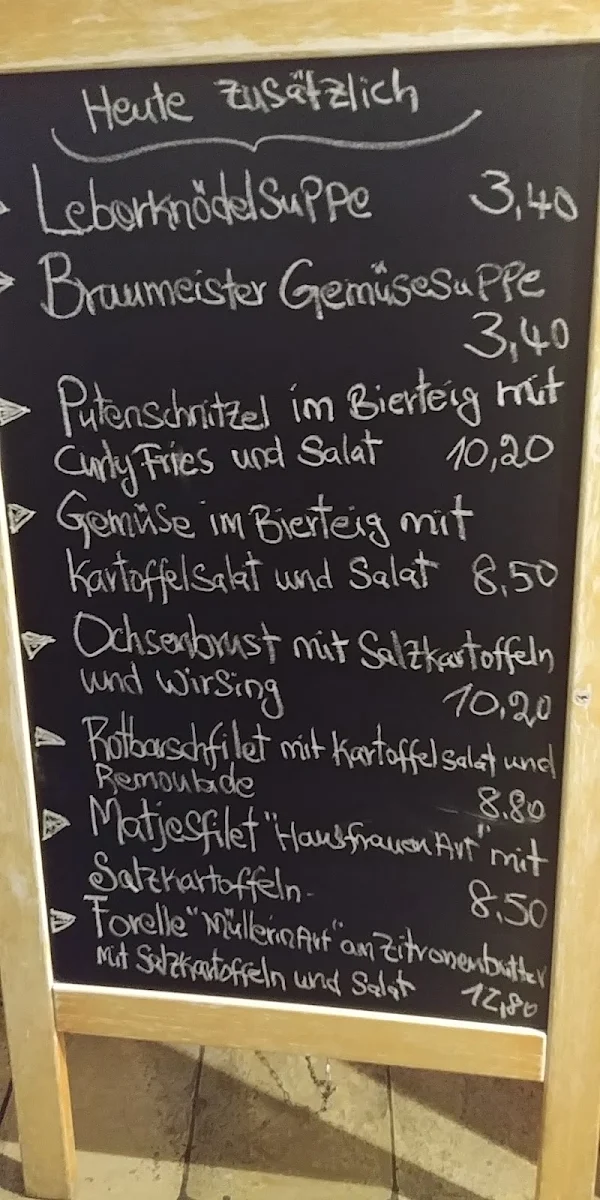 Heute zusätzlich
Leberknödelsuppe 3,40
Braumeister Gemüsesuppe
3,40
Putenschnitzel im Bierteig mit
Curly Fries und Salat 10,20
Gemüse im Bierteig mit
Kartoffelsalat und Salat 8,50
Ochsenbrust mit Salzkartoffeln
und Wirsing 10,20
Rotbarschfilet mit Kartoffelsalat und
Remoulade 8.80
Matjesfilet "Hausfrauen Art" mit
Salzkartoffeln- 8,50
Forelle "Müllerin Art" an Zitronenbutter
mit Salzkartoffeln und Salat 12,80